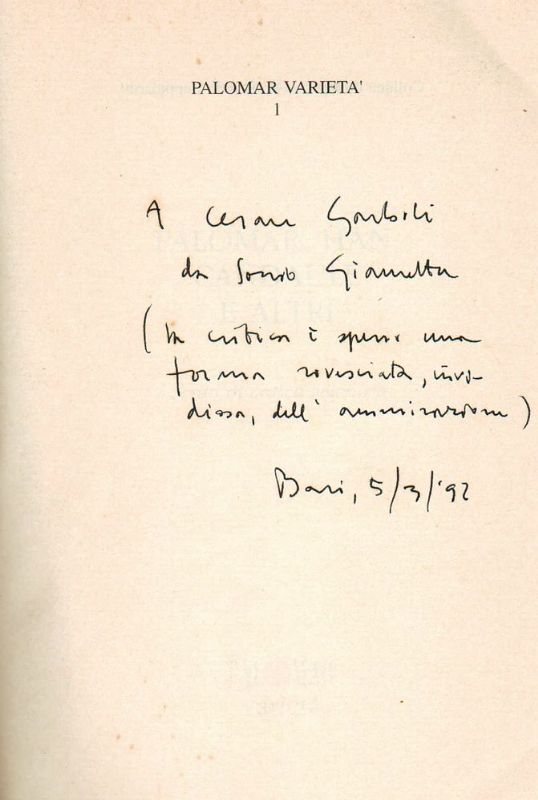 PALOMAR VARIETA'
1
A Cesare Garboli
da Sossio Giametta
(la critica è spesso una
forma rovesciata, invi-
diosa, dell'ammirazione)
Bari, 5/3/'92
PALOMAR, HAN,
E ALTRI